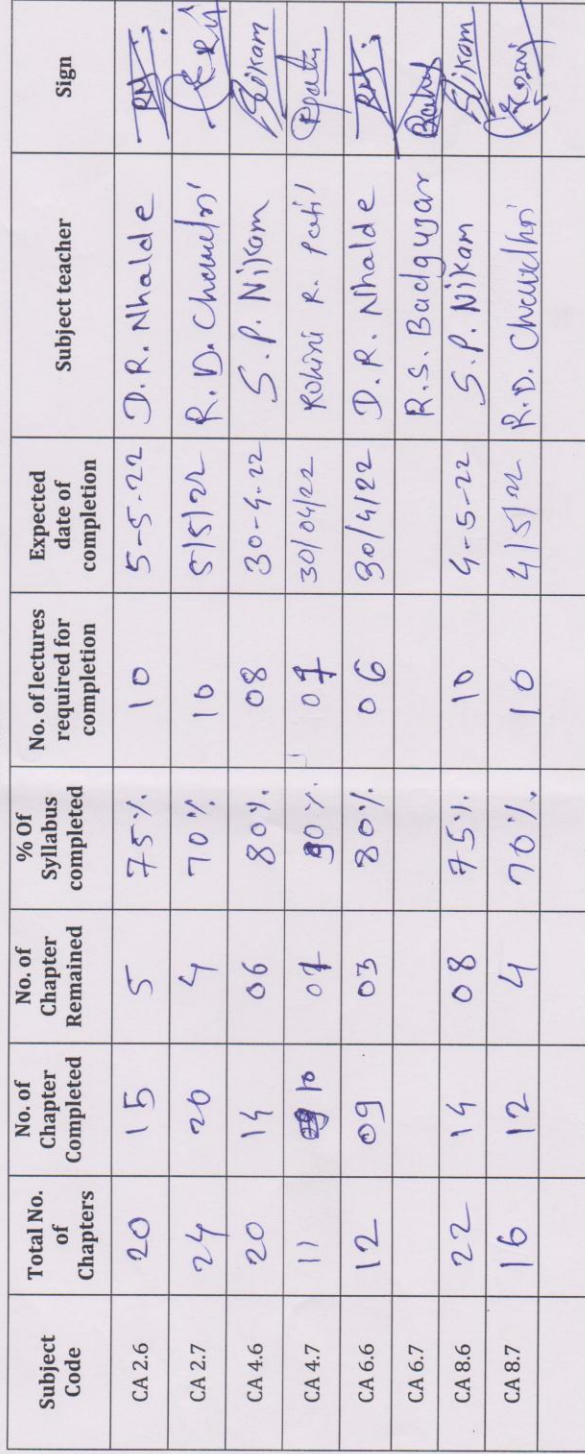 Subject Code | Total No. of Chapters | No. of Chapter Completed | No. of Chapter Remained | % Of Syllabus completed | No. of lectures required for completion | Expected date of completion | Subject teacher | Sign
CA 2.6 | 20 | 15 | 5 | 75% | 10 | 5-5-22 | D.R. Nhalde
CA 2.7 | 24 | 20 | 4 | 70% | 10 | 5/5/22 | R.D. Chaudhri
CA 4.6 | 20 | 14 | 06 | 80% | 08 | 30-4-22 | S.P. Nikam | Nikam
CA 4.7 | 11 | 10 | 07 | 90% | 07 | 30/04/22 | Rohini R. Patil
CA 6.6 | 12 | 09 | 03 | 80% | 06 | 30/4/22 | D.R. Nhalde
CA 6.7 | R.S. Badgujar
CA 8.6 | 22 | 14 | 08 | 75% | 10 | 4-5-22 | S.P. Nikam | Nikam
CA 8.7 | 16 | 12 | 4 | 70% | 10 | 4/5/22 | R.D. Chaudhri